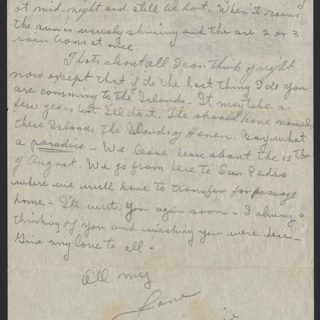 at mid-night and still be hot. When it rains
the sun is usually shining and the are 2 or 3
rain bows at once.
That's about all I can think of right
now except that if its the last thing I do you
are comming to the Islands. It may take a
few years but I'll do it. The should have named
these Islands the Islands of Heaven. Boy what
a paradise - We leave here about the 15th
of August. We go from here to San Pedro
where we will have to transfer for passage
home - I'll write you again soon - I always am
thinking of you and wishing you were here -
Give my love to all -
All my
Love